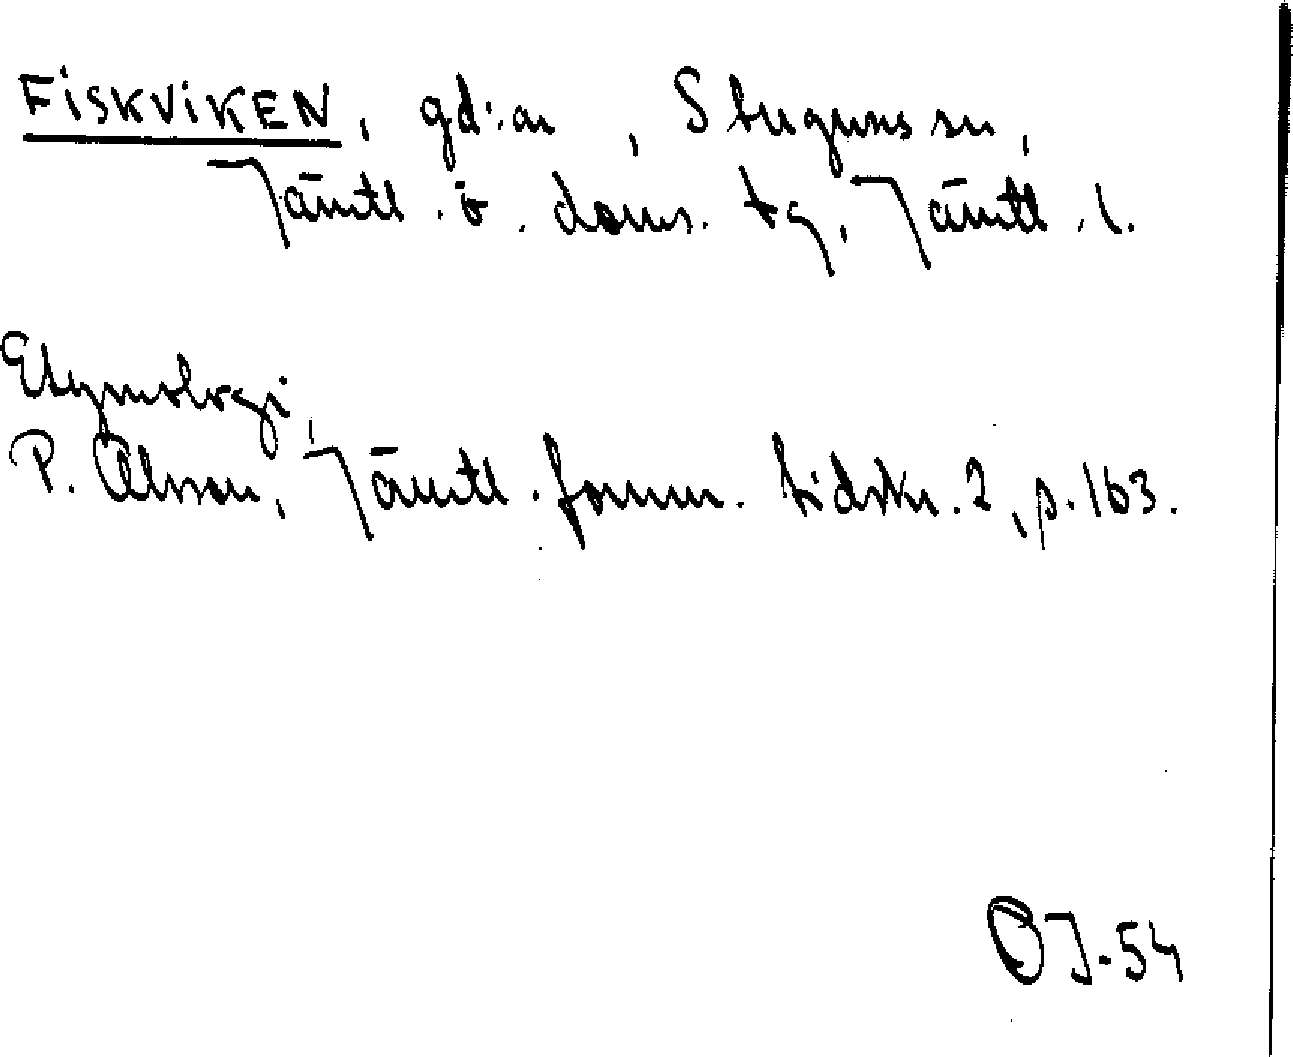 FiSKViKEN, gd:ar, Stuguns sn,
Jämtl. ö. doms. tg, Jämtl. l.
Etymologi
P. Olsson, Jämtl. fornm. tidskr. 2, p. 163.
OJ-54